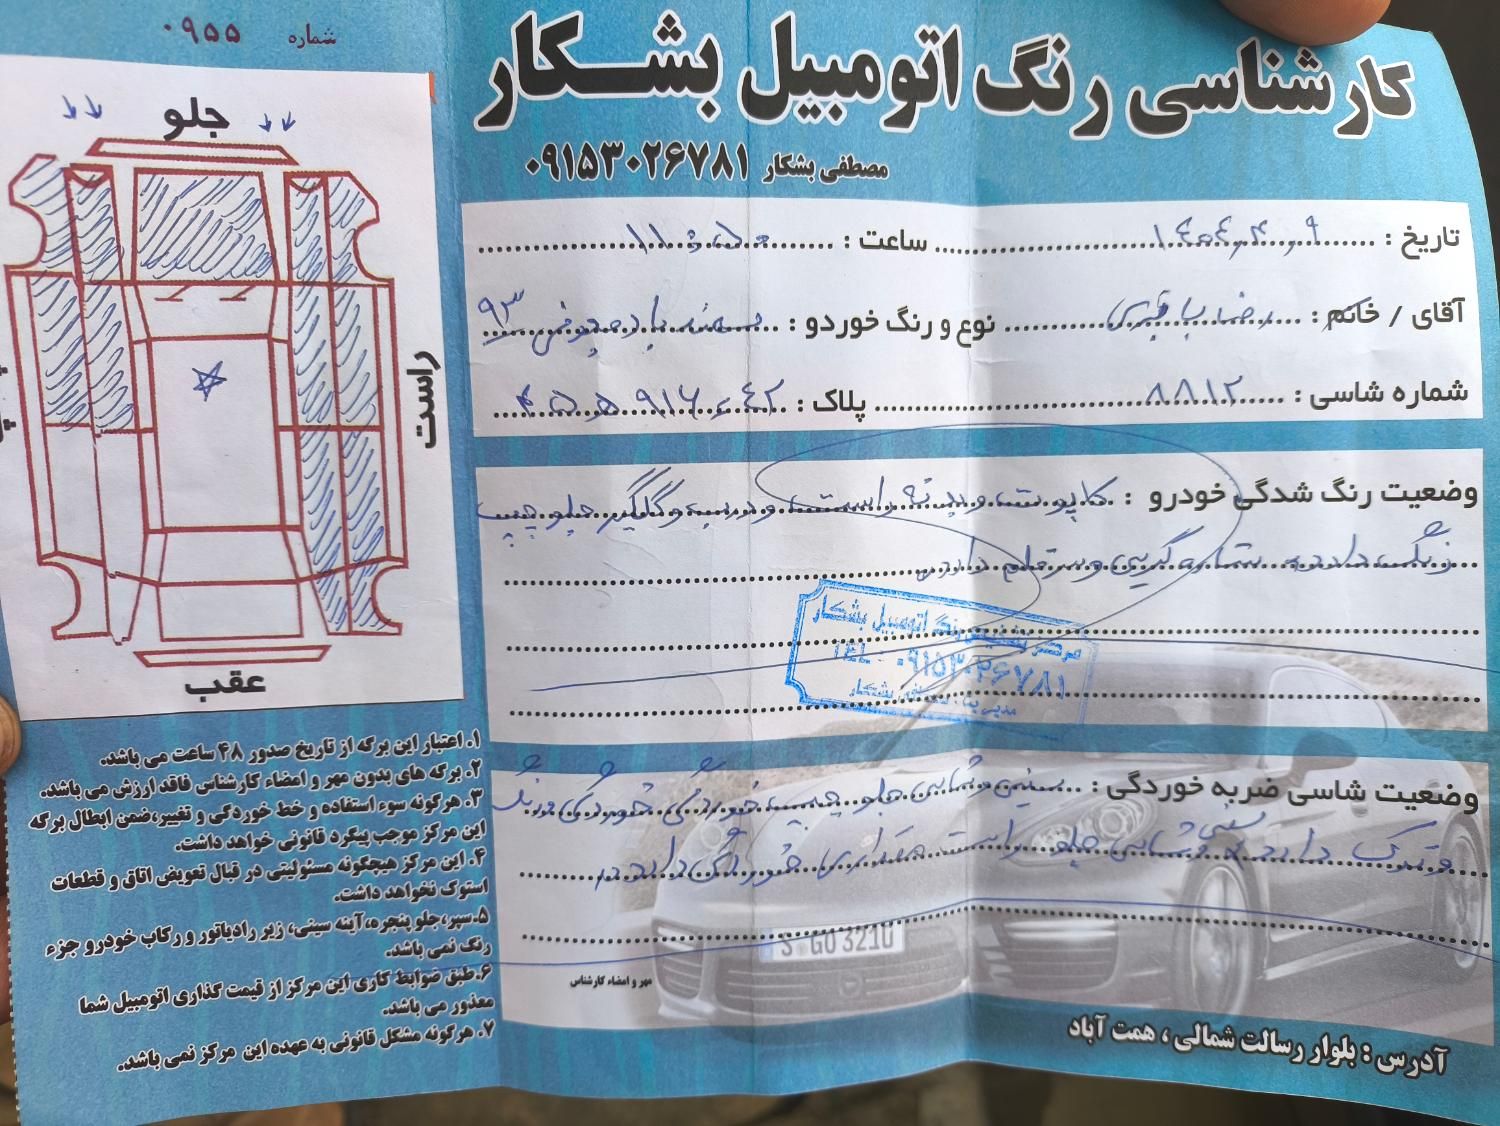 کارشناسی رنگ اتومبیل بشکار
مصطفی بشکار ۰۹۱۵۳۰۲۶۷۸۱
تاریخ : ۱۴۰۴,۴,۹ ساعت : ۱۱:۵۰
آقای / خانم : رضا باقری نوع و رنگ خوردو : سمند بادمجونی ۹۳
شماره شاسی : ۸۸۱۲ پلاک :
وضعیت رنگ شدگی خودرو : کاپوت و بدنه راست و درب و گلگیر جلو چپ
رنگ دارد. ستاره گریی و دارد.
مرکز تشخیص رنگ اتومبیل بشکار
TEL: ۰۹۱۵۳۰۲۶۷۸۱
بشکار
وضعیت شاسی ضربه خوردگی : سینی شاسی جلو چپ خوردگی
و ترک دارد سینی و شاسی جلو راست مقداری خوردگی دارد.
S GO 321U
مهر و امضاء کارشناس
آدرس : بلوار رسالت شمالی ، همت آباد
شماره ۰۹۵۵
جلو
راست
عقب
۱. اعتبار این برگه از تاریخ صدور ۴۸ ساعت می باشد.
۲. برگه های بدون مهر و امضاء کارشناس فاقد ارزش می باشد.
۳. هرگونه سوء استفاده و خط خوردگی و تغییر،ضمن ابطال برگه
این مرکز موجب پیگرد قانونی خواهد داشت.
۴. این مرکز هیچگونه مسئولیتی در قبال تعویض اتاق و قطعات
استوک نخواهد داشت.
۵.سپر،جلو پنجره،آینه سینی، زیر رادیاتور و رکاب خودرو جزء
رنگ نمی باشد.
۶.طبق ضوابط کاری این مرکز از قیمت گذاری اتومبیل شما
معذور می باشد.
۷. هرگونه مشکل قانونی به عهده این مرکز نمی باشد.